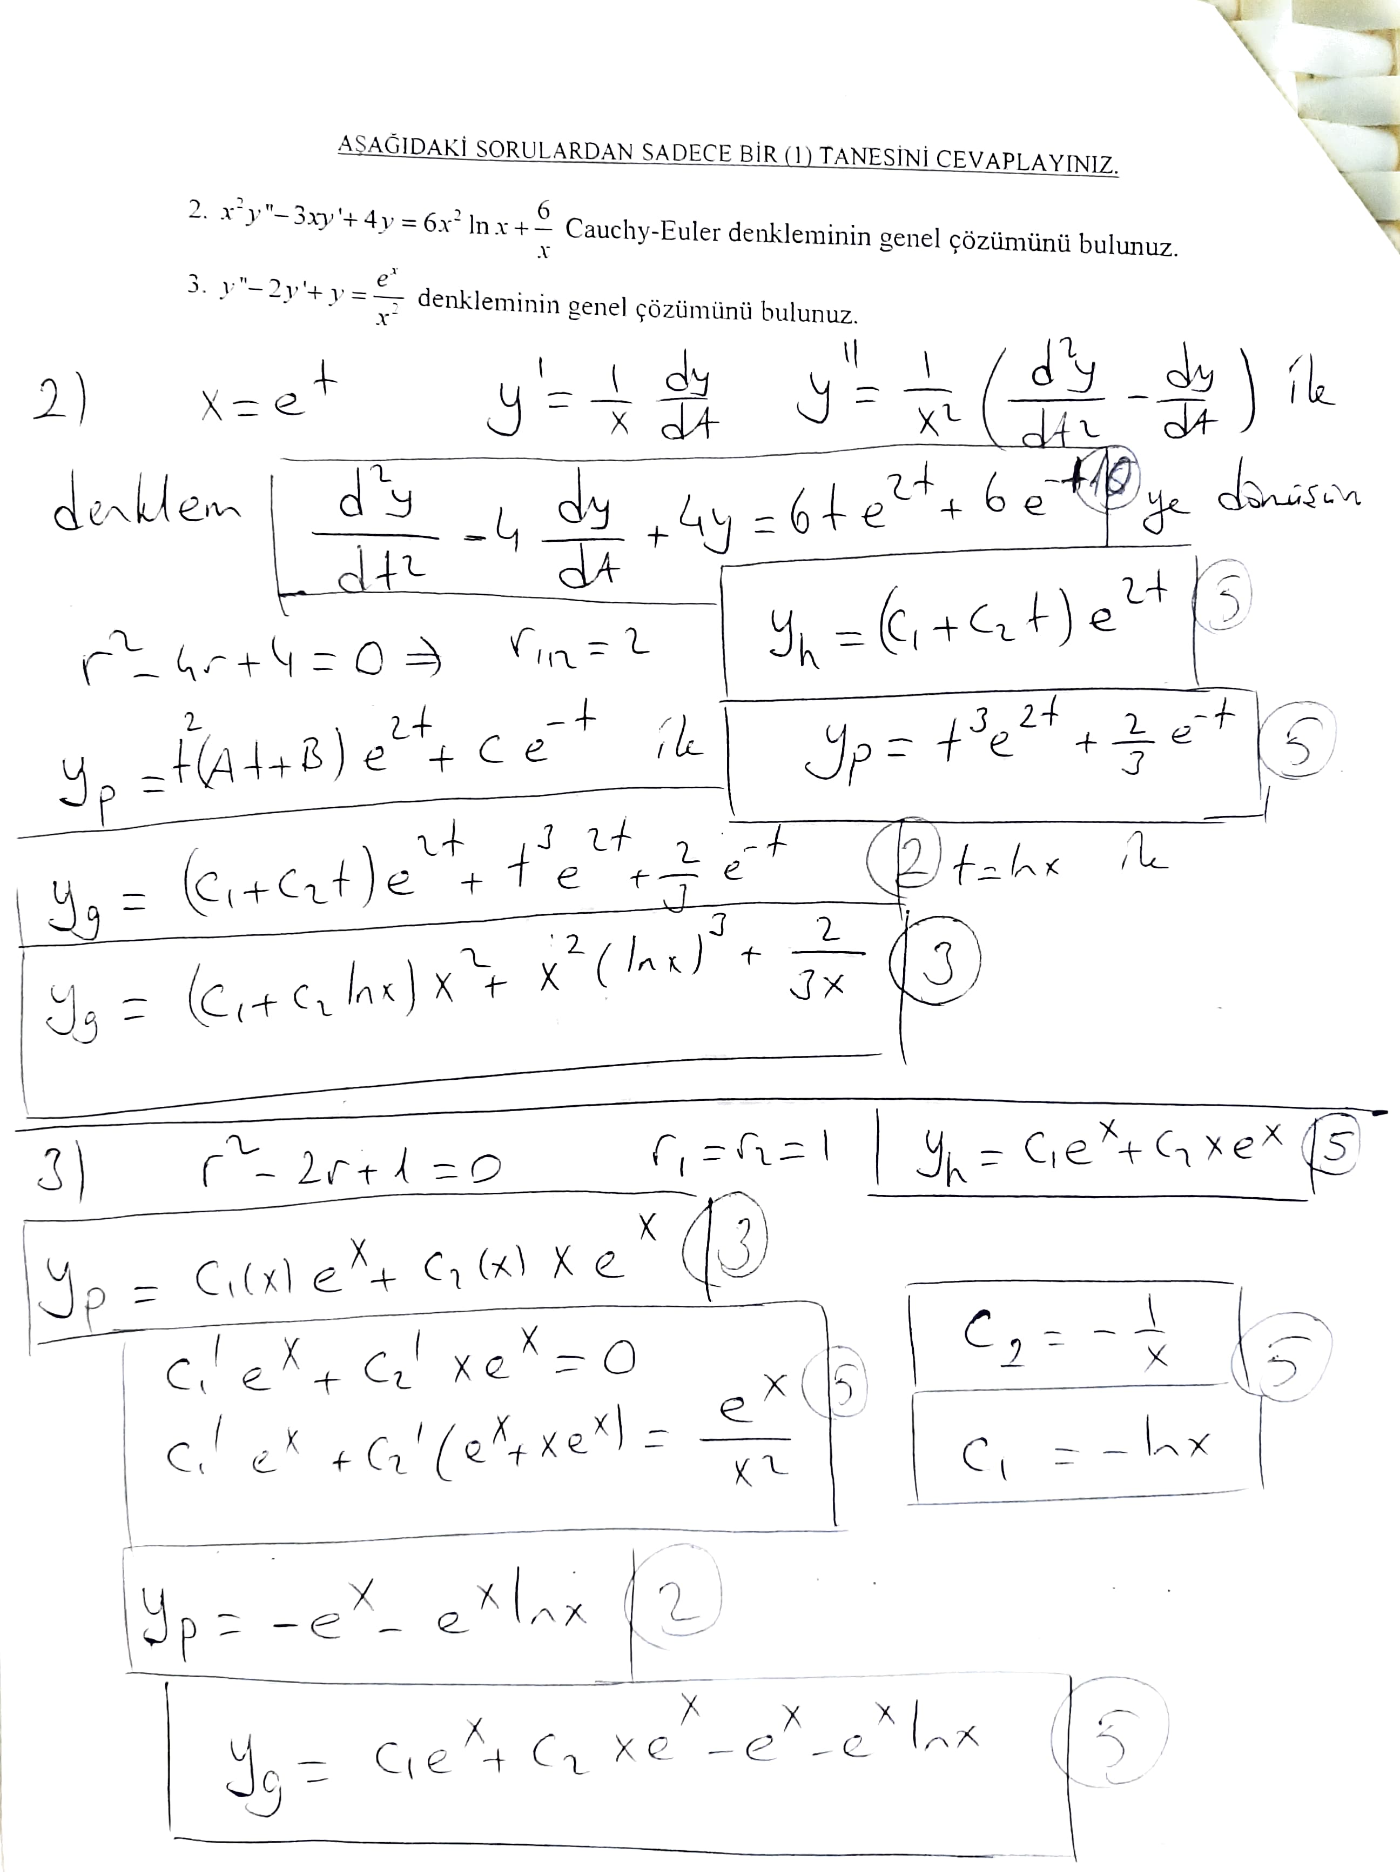 AŞAĞIDAKİ SORULARDAN SADECE BİR (1) TANESİNİ CEVAPLAYINIZ.
2. x²y"−3xy'+4y = 6x² ln x + 6/x Cauchy-Euler denkleminin genel çözümünü bulunuz.
3. y"−2y'+y = eˣ/x² denkleminin genel çözümünü bulunuz.
2) x = e^t y' = 1/x dy/dt y'' = 1/x² (d²y/dt² − dy/dt) ile
denklem d²y/dt² − 4 dy/dt + 4y = 6te^2t + 6e^-t 10 ye dönüşür
r² − 4r + 4 = 0 ⇒ r₁,₂ = 2 y_h = (c₁ + c₂t) e^2t 5
y_p = t²(At+B) e^2t + c e^-t ile y_p = t³e^2t + 2/3 e^-t 5
y_g = (c₁+c₂t)e^2t + t³e^2t + 2/3 e^-t 2 t=lnx ile
y_g = (c₁+c₂ lnx) x² + x²(lnx)³ + 2/3x 3
3) r² − 2r + 1 = 0 r₁ = r₂ = 1 y_h = c₁eˣ + c₂xeˣ 5
y_p = c₁(x)eˣ + c₂(x) x eˣ 3
c₁' eˣ + c₂' xeˣ = 0 c₂ = − 1/x 5
c₁' eˣ + c₂'(eˣ + xeˣ) = eˣ/x² 5 c₁ = − lnx
y_p = −eˣ − eˣ lnx 2
y_g = c₁eˣ + c₂ xeˣ − eˣ − eˣ lnx 5